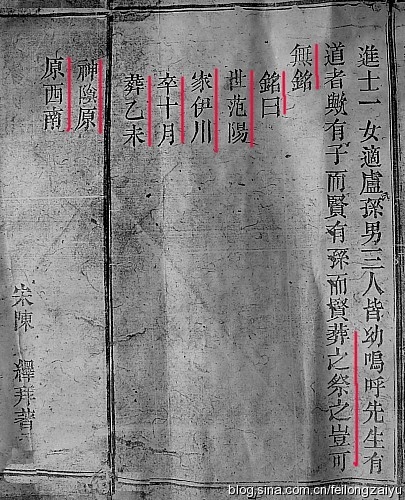 進士一女適盧孫男三人皆幼嗚呼先生有
道者歟有子而賢有孫而賢葬之祭之豈可
無銘
銘曰
世范陽
家伊川
卒十月
葬乙未
神陰原
原西南
宋陳 繹拜著
blog.sina.com.cn/feilongzaiyu